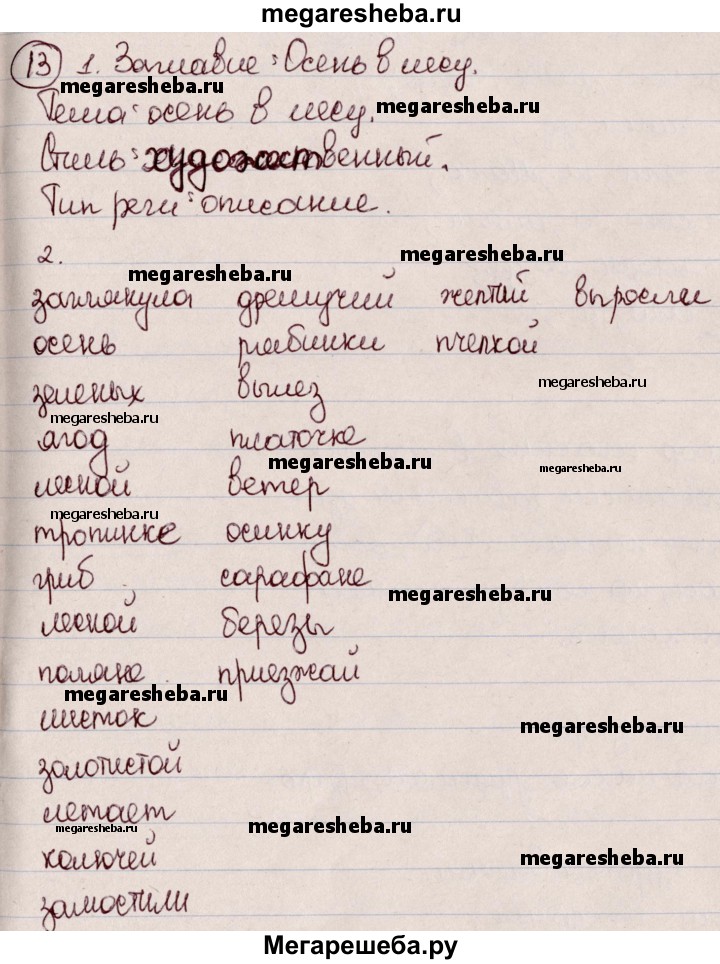 megaresheba.ru
13 1. Заглавие: Осень в лесу.
megaresheba.ru
Тема: осень в лесу. megaresheba.ru
Стиль: художественный.
Тип речи: описание.
2. megaresheba.ru
megaresheba.ru
заглянула дремучий желтый выросли
осень рябинки пчелкой
зеленых вылез megaresheba.ru
megaresheba.ru
ягод платочке
megaresheba.ru megaresheba.ru
лесной ветер
megaresheba.ru
тропинке осинку
гриб сарафане megaresheba.ru
лесной березы
поляне приезжай
megaresheba.ru
листок megaresheba.ru
золотистой
летает
megaresheba.ru megaresheba.ru
колючей megaresheba.ru
замостили
Мегарешеба.ру